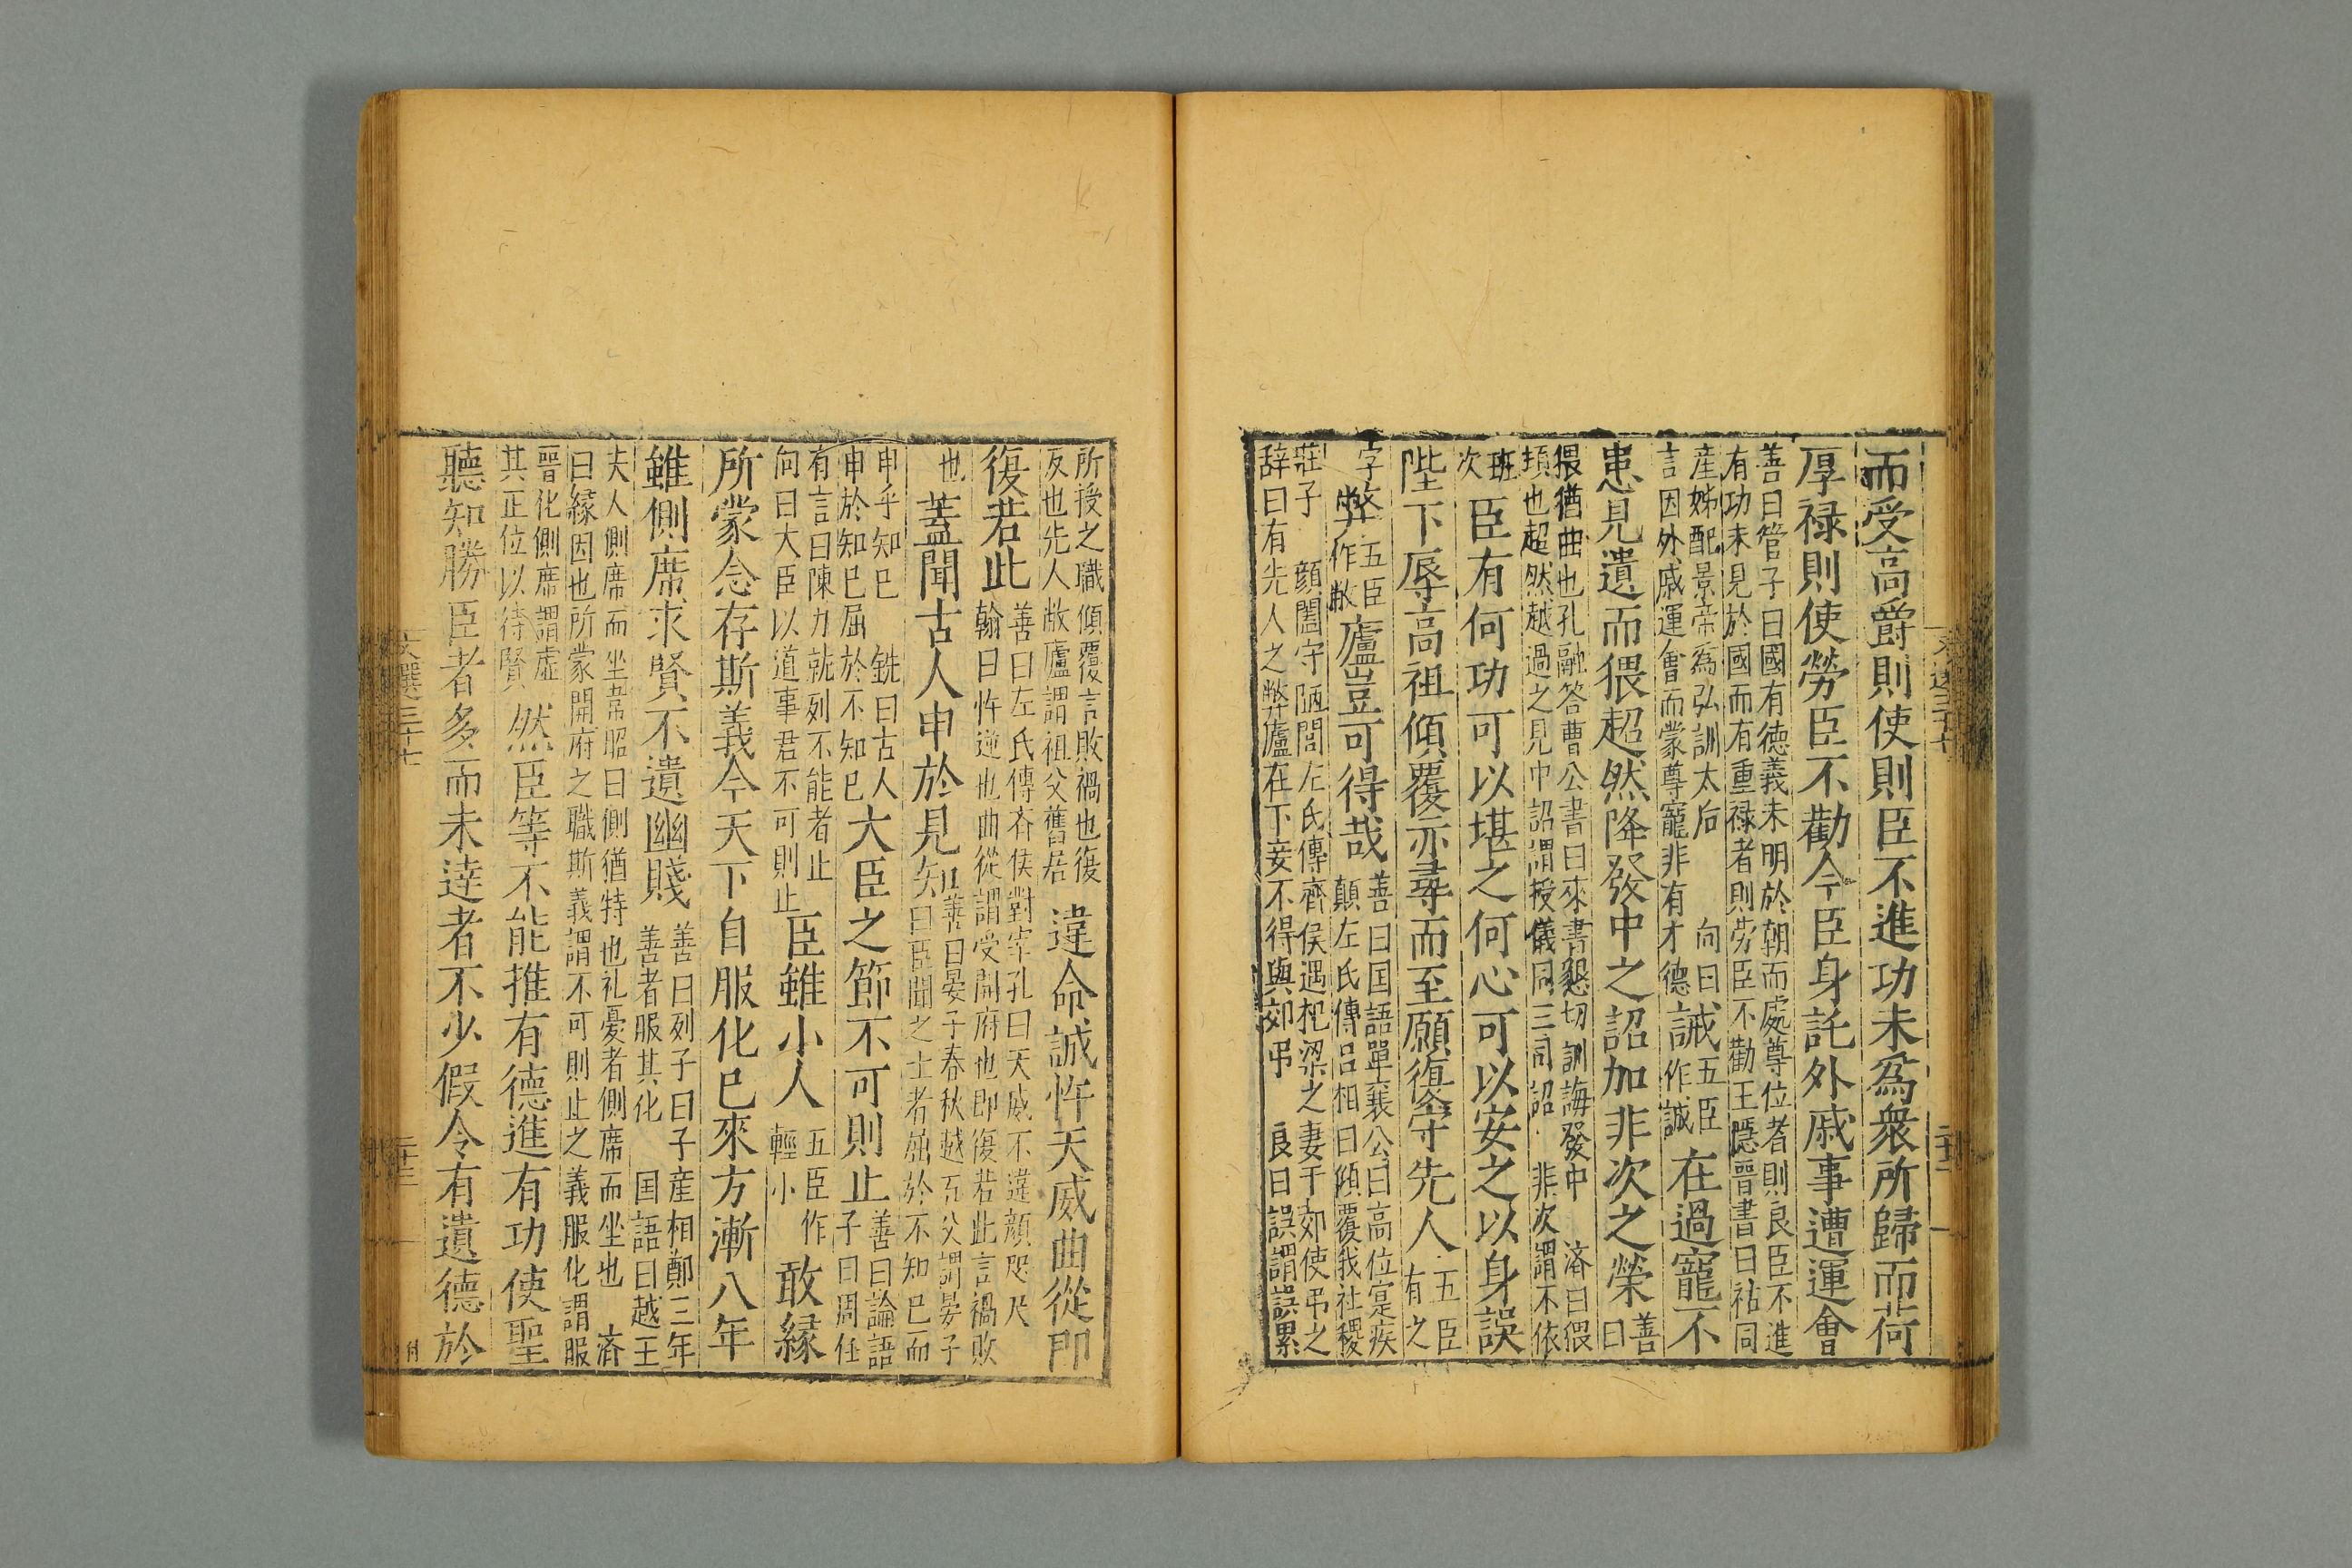 而受高爵則使則臣不進功未爲衆所歸而荷
厚禄則使勞臣不勸今臣身託外戚事遭運會
善曰管子曰國有德義未明於朝而處尊位者則良臣不進
有功未見於國而有重禄者則勞臣不勸王隱晉書曰祜同
産姊配景帝爲弘訓太后 向曰
言因外戚運會而蒙尊寵非有才德
誡
五臣
作誠
在過寵不
患見遺而猥超然降發中之詔加非次之榮
善
曰
猥猶曲也孔融答曹公書曰來書懇切訓誨發中 濟曰猥
頊也超然越過之見中詔謂授儀同三司詔 非次謂不依
班
次
臣有何功可以堪之何心可以安之以身誤
陛下辱高祖傾覆亦尋而至願復守先人
五臣
有之
字
弊
五臣
作敝
廬豈可得哉
善曰国語單襄公曰高位寔疾
顛左氏傳吕相曰傾覆我社稷
莊子 顔闔守陋閭左氏傳齊侯遇杞梁之妻于郊使弔之
辞曰有先人之弊廬在下妾不得與郊弔 良曰誤謂誤累
所授之職傾覆言敗禍也復
反也先人敝廬謂祖父舊居
違命誠忤天威曲從即
復若此
善曰左氏傳齐侯對宰孔曰天威不違顔咫尺
翰曰忤逆也曲從謂受開府也即復若此言禍敗
也
蓋聞古人申於見知
善曰晏子春秋越石父謂晏子
曰臣聞之士者屈於不知已而
申乎知已 銑曰古人
申於知已屈於不知已
大臣之節不可則止
善曰論語
子曰周任
有言曰陳力就列不能者止
向曰大臣以道事君不可則止
臣雖小人
五臣作
輕小
敢緣
所蒙念存斯義今天下自服化已來方漸八年
雖側席求賢不遺幽賤
善曰列子曰子産相鄭三年
善者服其化 国語曰越王
夫人側席而坐韋昭曰側猶特也礼憂者側席而坐也 済
曰緣因也所蒙開府之職斯義謂不可則止之義服化謂服
晉化側席謂虚
其正位以待賢
然臣等不能推有德進有功使聖
聽知勝臣者多而未達者不少假令有遺德於
文選三十七
二十三